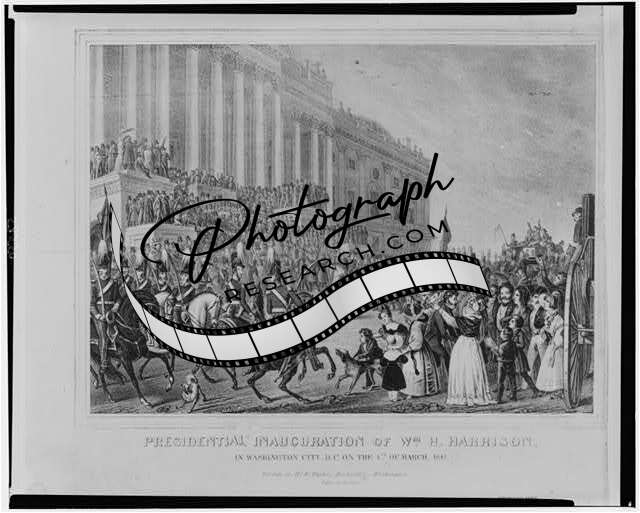 Photograph
RESEARCH.COM
PRESIDENTIAL INAUGURATION OF Wm H. HARRISON,
IN WASHINGTON CITY, D.C. ON THE 4th OF MARCH, 1841.